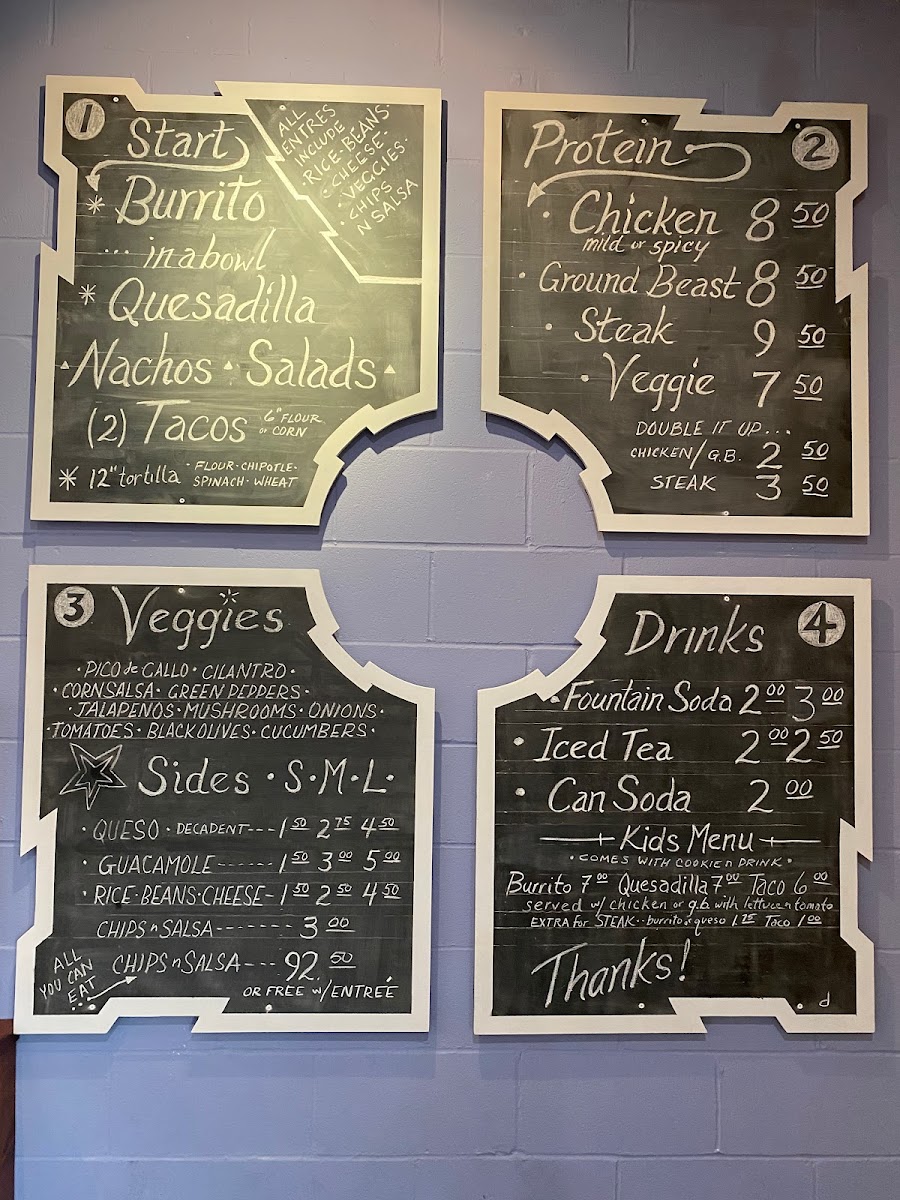 1
Start
* Burrito
... in a bowl
* Quesadilla
Nachos • Salads
(2) Tacos 6" FLOUR
or CORN
* 12" tortilla - FLOUR • CHIPOTLE •
SPINACH • WHEAT
ALL
ENTRES
INCLUDE
• RICE • BEANS
• CHEESE •
• VEGGIES •
CHIPS
N SALSA
2
Protein
• Chicken 8 50
mild or spicy
• Ground Beast 8 50
• Steak 9 50
• Veggie 7 50
DOUBLE IT UP...
CHICKEN/G.B. 2 50
STEAK 3 50
3
Veggies
• PICO de GALLO • CILANTRO •
• CORNSALSA • GREEN PEPPERS •
• JALAPENOS • MUSHROOMS • ONIONS •
• TOMATOES • BLACK OLIVES • CUCUMBERS •
Sides • S • M • L •
• QUESO • DECADENT --- 1 50 2 75 4 50
• GUACAMOLE ------ 1 50 3 00 5 00
• RICE • BEANS • CHEESE - 1 50 2 50 4 50
CHIPS n SALSA ------- 3 00
ALL
YOU CAN
EAT
...
CHIPS n SALSA --- 92 50
OR FREE w/ENTREÉ
4
Drinks
• Fountain Soda 2 00 3 00
• Iced Tea 2 00 2 50
• Can Soda 2 00
Kids Menu
• COMES WITH COOKIE n DRINK •
Burrito 7 00 Quesadilla 7 00 Taco 6 00
served w/ chicken or g.b. with lettuce n tomato
EXTRA for STEAK •• burrito or queso 1.75 Taco 1 00
Thanks!
d